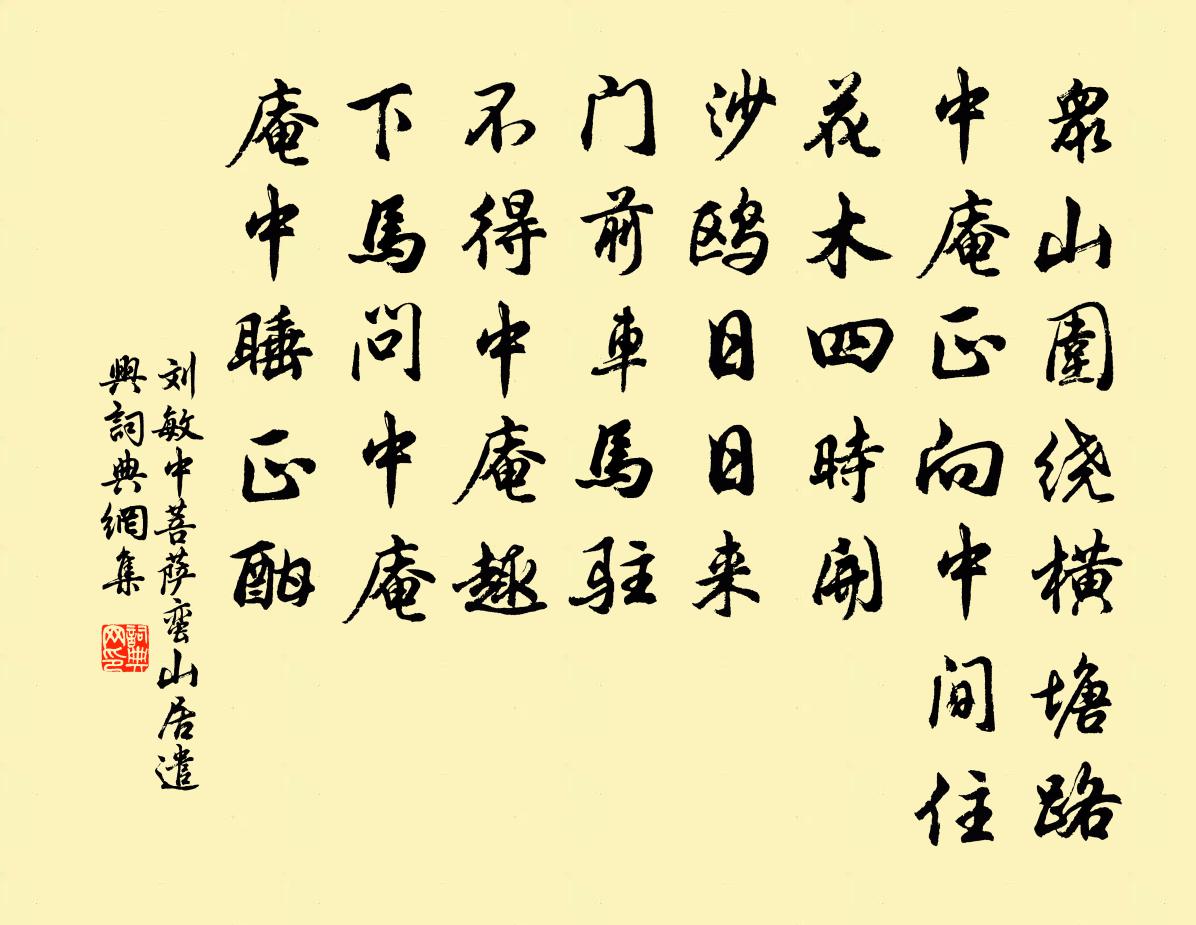 衆山圍绕橫塘路
中庵正向中间住
花木四時開
沙鸥日日来
门前車馬驻
不得中庵趣
下馬问中庵
庵中睡正酣
刘敏中菩萨蛮山居遣
興詞典網集
詞典
网印